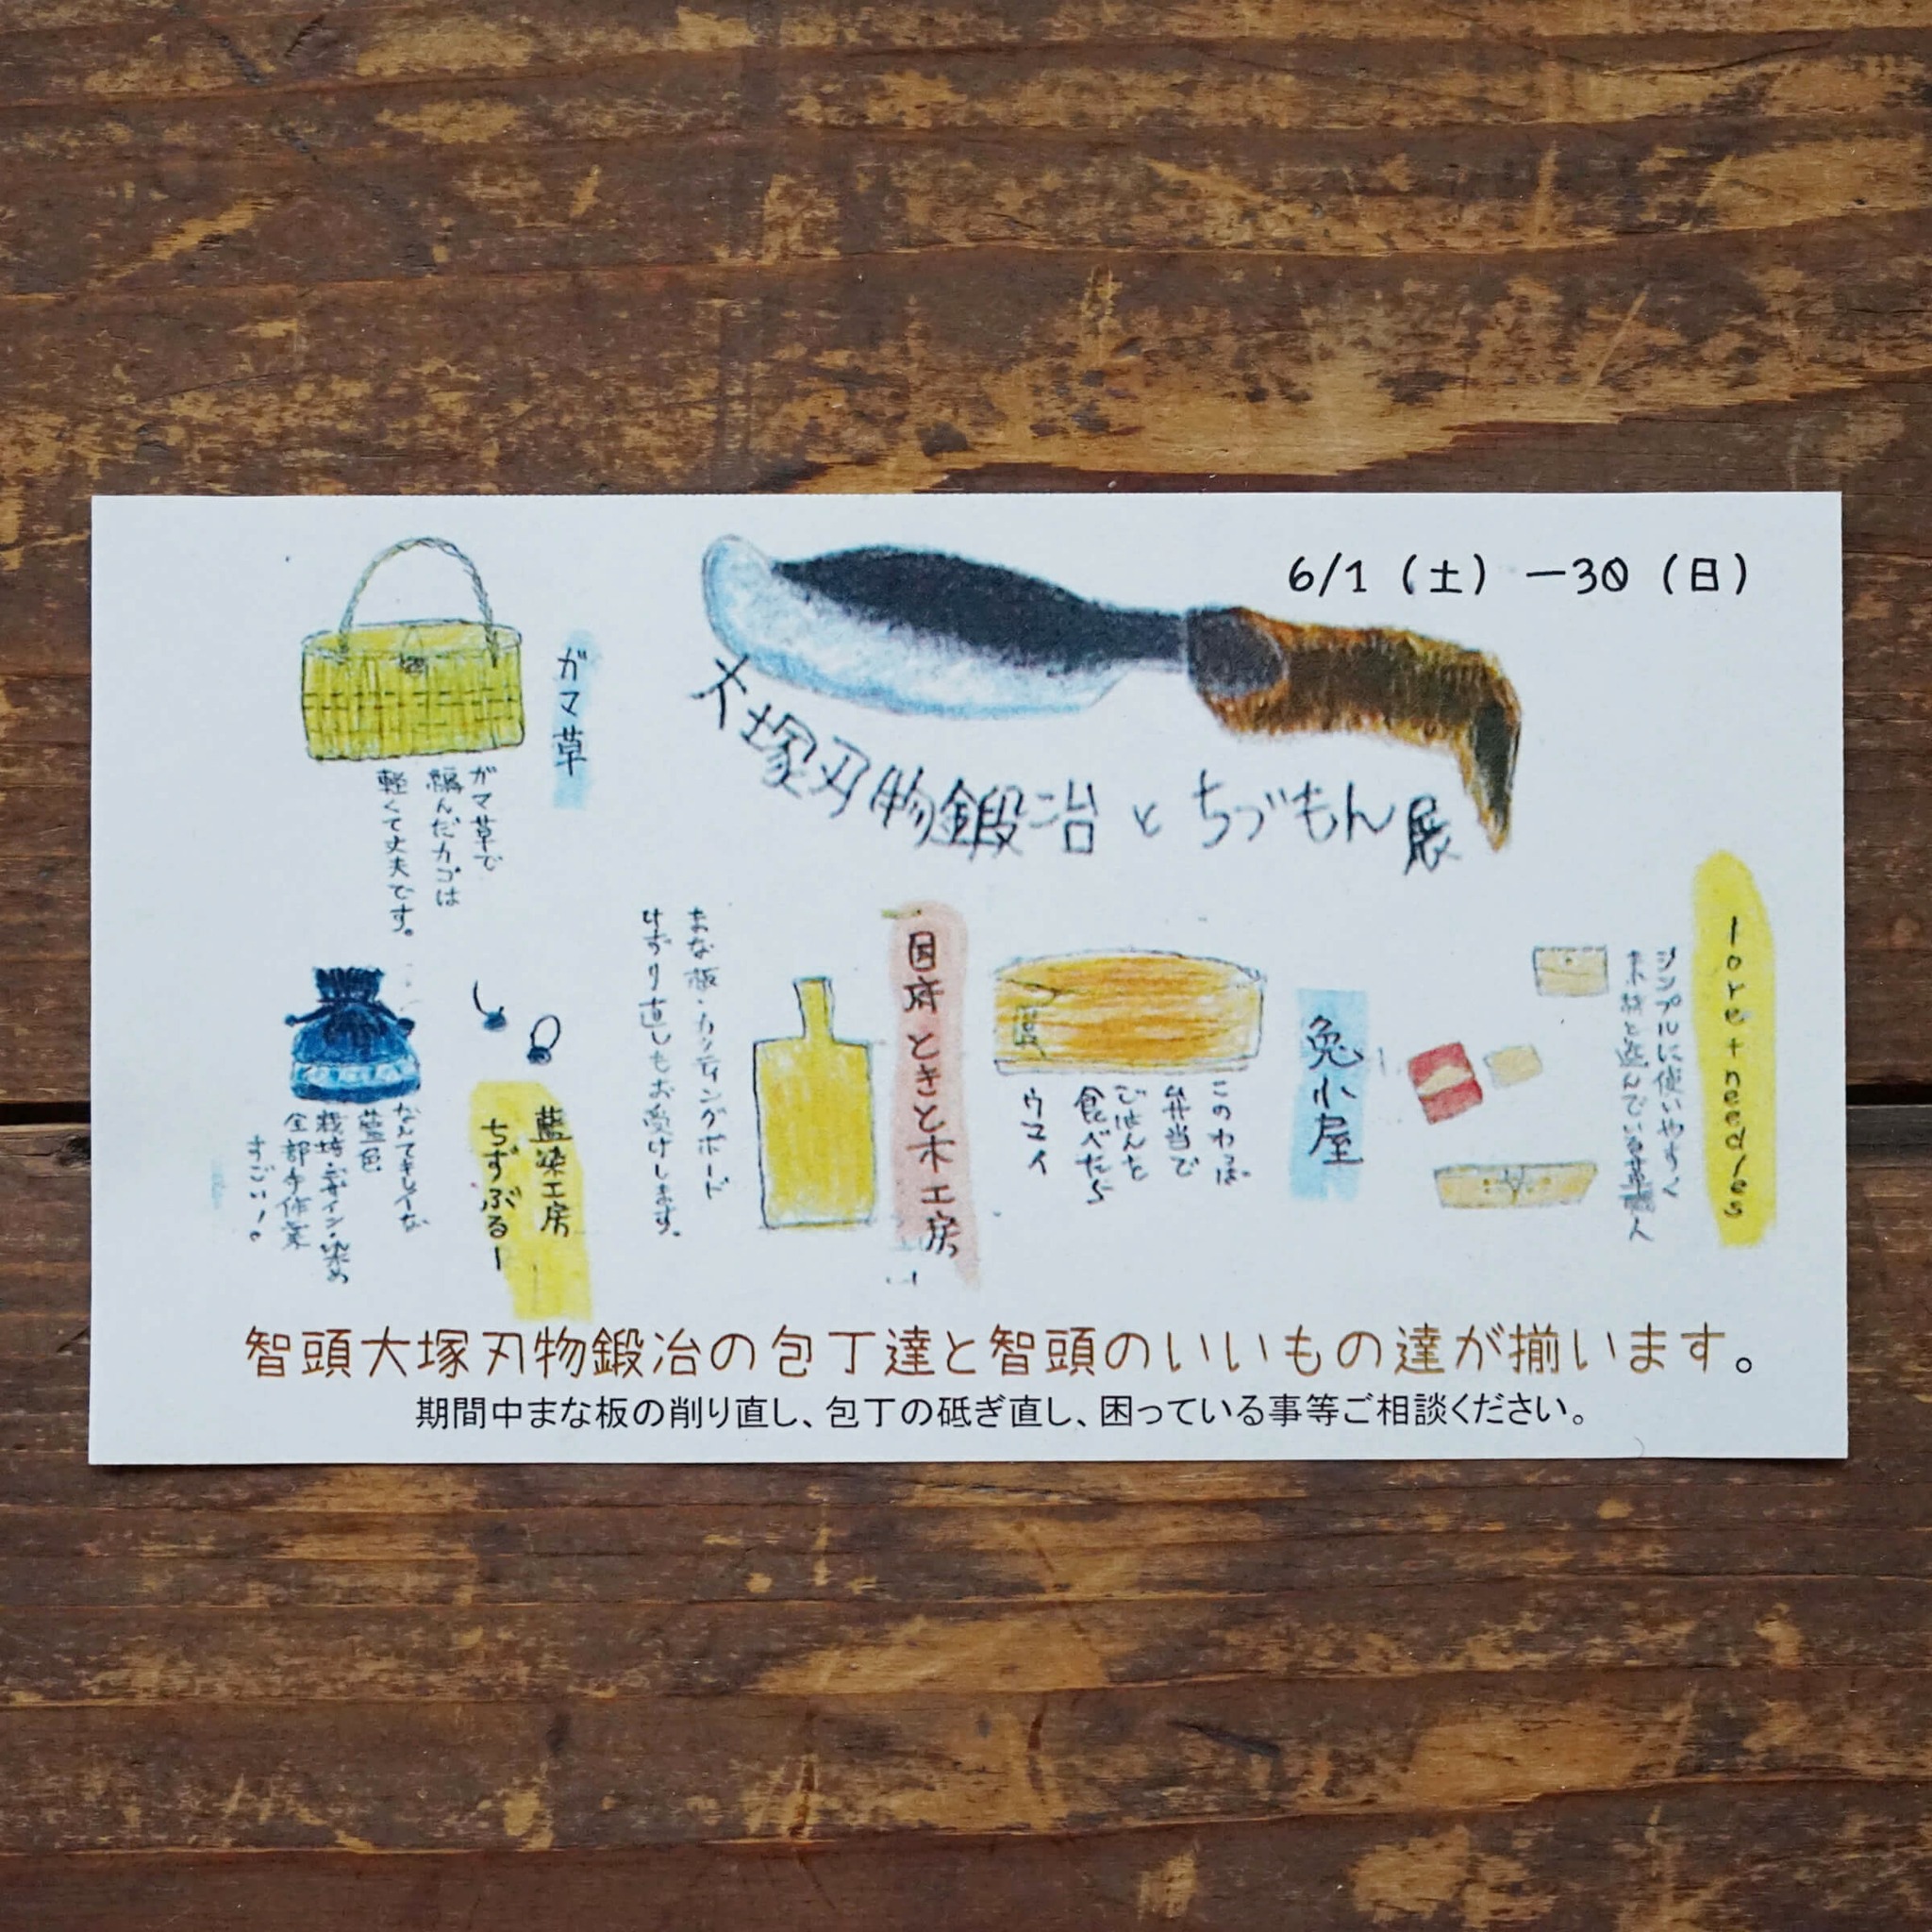 6/1（土）—30（日）
大塚刃物鍛冶とちづもん展
ガマ草
ガマ草で
編んだカゴは
軽くて丈夫です。
lore+needles
シンプルに使いやすく
木
兎小屋
このわっぱ
弁当で
ごはんを
食べたら
ウマイ
国府ときと木工房
まな板・カッティングボード
けずり直しもお受けします。
藍染工房
ちずぶるー
なんてキレイな
藍色
栽培・デザイン・染め
全部手作業
すごい!。
智頭大塚刃物鍛冶の包丁達と智頭のいいもの達が揃います。
期間中まな板の削り直し、包丁の砥ぎ直し、困っている事等ご相談ください。